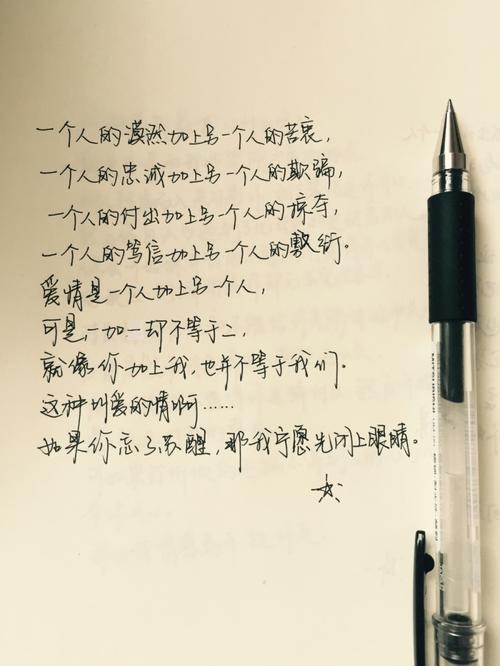 一个人的漠然加上另一个人的苦衷，
一个人的忠诚加上另一个人的欺骗，
一个人的付出加上另一个人的掠夺，
一个人的笃信加上另一个人的敷衍。
爱情是一个人加上另一个人，
可是，一加一却不等于二，
就像你加上我，也并不等于我们。
这种叫爱的情啊……
如果你忘了苏醒，那我宁愿先闭上眼睛。